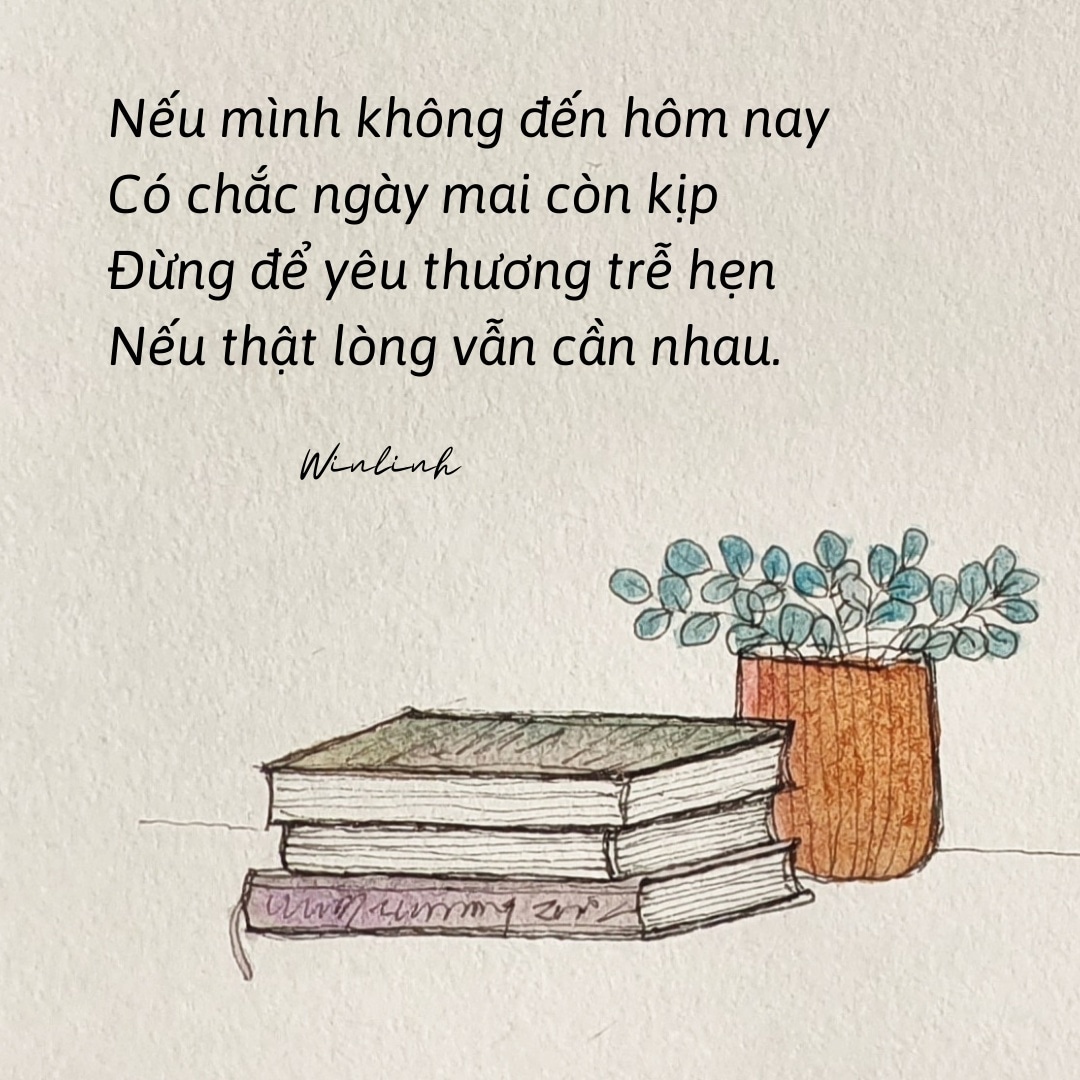 Nếu mình không đến hôm nay
Có chắc ngày mai còn kịp
Đừng để yêu thương trễ hẹn
Nếu thật lòng vẫn cần nhau.
Winlinh